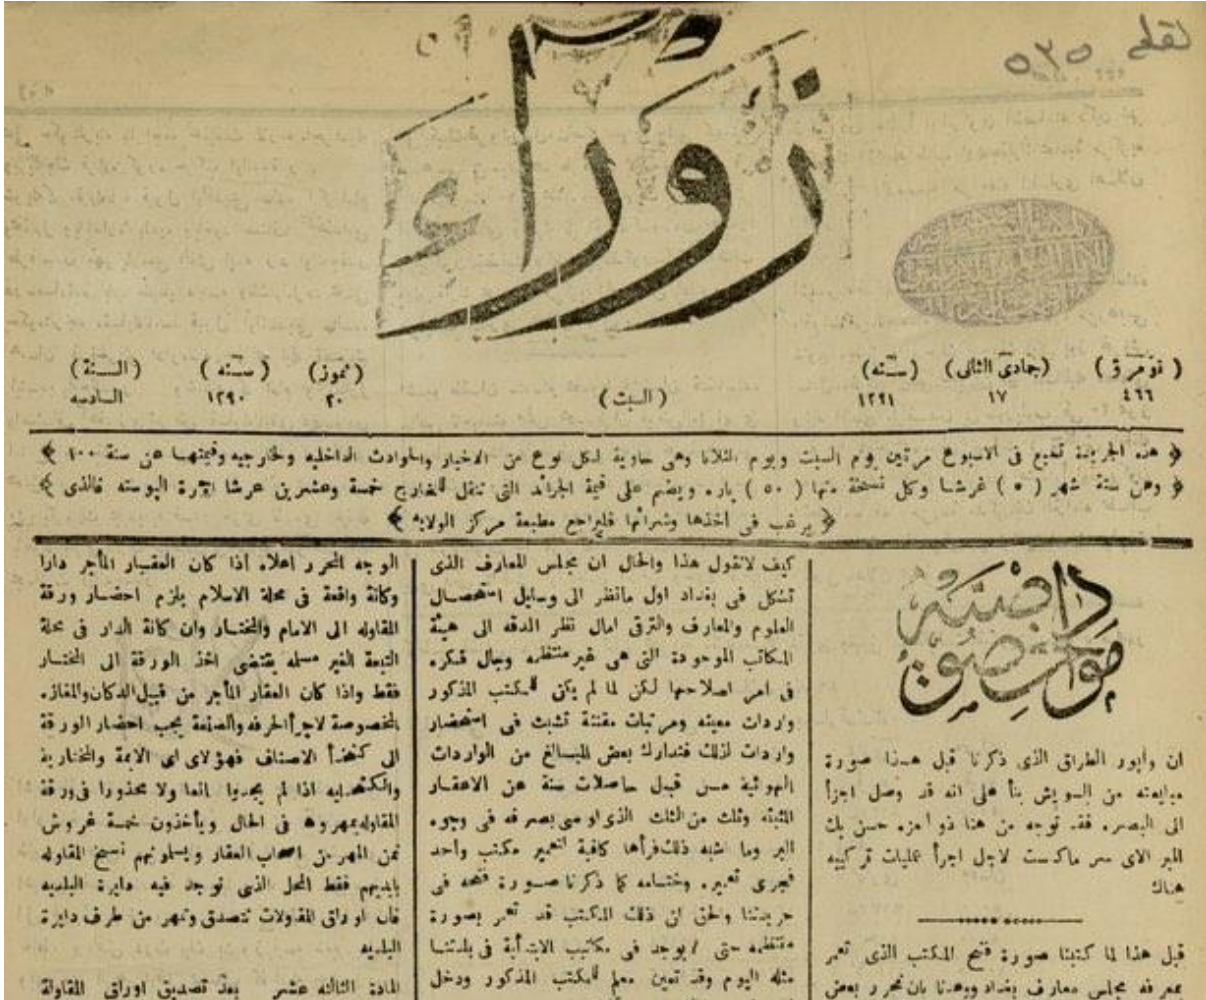 زوراء
٥٢٥
( نومرو ) ( جمادى الثانى ) ( سنه ) ( تموز ) ( سنه ) ( السنة )
٤٦٦ ١٧ ١٢٩١ ( السبت ) ٢٠ ١٢٩٠ السادسه
﴿ هذه الجريدة تطبع فى الاسبوع مرتين يوم السبت ويوم الثلاثا وهى حاوية لكل نوع من الاخبار والحوادث الداخليه والخارجيه وقيمتها عن سنة ١٠٠ ﴾
﴿ وعن ستة شهر ( ٥٠ ) غرشا وكل نسخة منها ( ٥٠ ) باره ويضم على قيمة الجرائد التى تنقل للخارج خمسة وعشرين غرشا اجرة البوسته فالذى ﴾
﴿ يرغب فى أخذها وشرائها فليراجع مطبعة مركز الولايه ﴾
مواد خصوصيه
ان وأبور الطراق الذى ذكرنا قبل هذا صورة
مبايعته من السويش بنأ على انه قد وصل اجزأ
الى البصره فقد توجه من هنا ذو أمره حسن بك
الاى لاجل اجرأ عمليات تركيبه
هناك
قبل هذا لما كتبنا صورة فتح المكتب الذى تعمر
بمعرفه مجلس معارف بغداد ووعدنا بان نحرر بعض
كيف لانقول هذا والحال ان مجلس المعارف الذى
تشكل فى بغداد اول مانظر الى وسايل استحصال
العلوم والمعارف والترقى امال نظر الدقه الى هيئة
المكاتب الموجودة التى هى غير منتظمه وجال فكره
فى امر اصلاحها لكن لما لم يكن للمكتب المذكور
واردات معينه ومرتبات مقننة تشبث فى استحضار
واردات لذلك فتدارك بعض المبالغ من الواردات
من قبل حاصلات سنة عن الاعقار
وثلث من الثلث الذى اوصى بصرفه فى وجوه
البر وما شبه ذلك فرأها كافية لتعمير مكتب وأحد
فجرى تعميره وختامه كما ذكرنا صورة فتحه فى
جريدتنا والحق ان ذلك المكتب قد تعمر بصورة
منتظمه حتى لايوجد فى مكاتيب الابتدأية فى بلدتنا
مثله اليوم وقد تعين معلم للمكتب المذكور ودخل
الوجه المحرر اعلاه أذا كان العقار المأجر دارا
وكانة واقعة فى محلة الاسلام يلزم احضار ورقة
المقاوله الى الامام والمختار وان كانة الدار فى محلة
التبعة الغير مسلمه يقتضى اخذ الورقة الى المختار
فقط واذا كان العقار المأجر من قبيل الدكان والمغازه
المخصوصة لاجرأ الحرفه والصنعة يجب احضار الورقة
الى كتخدأ الاصناف فهؤلاى اى الايمة والمختارية
والكتخدايه اذا لم يجدوا مانعا ولا محذورا فى ورقة
المقاوله يمهروها فى الحال ويأخذون خمسة غروش
ثمن المهر من اصحاب العقار ويسلونهم نسخ المقاوله
بايديهم فقط المحل الذى توجد فيه دايرة البلديه
فان اوراق المقاولات تتصدق وتمهر من طرف دايرة
البلديه
المادة الثالثه عشر بعد تصديق اوراق المقاولة